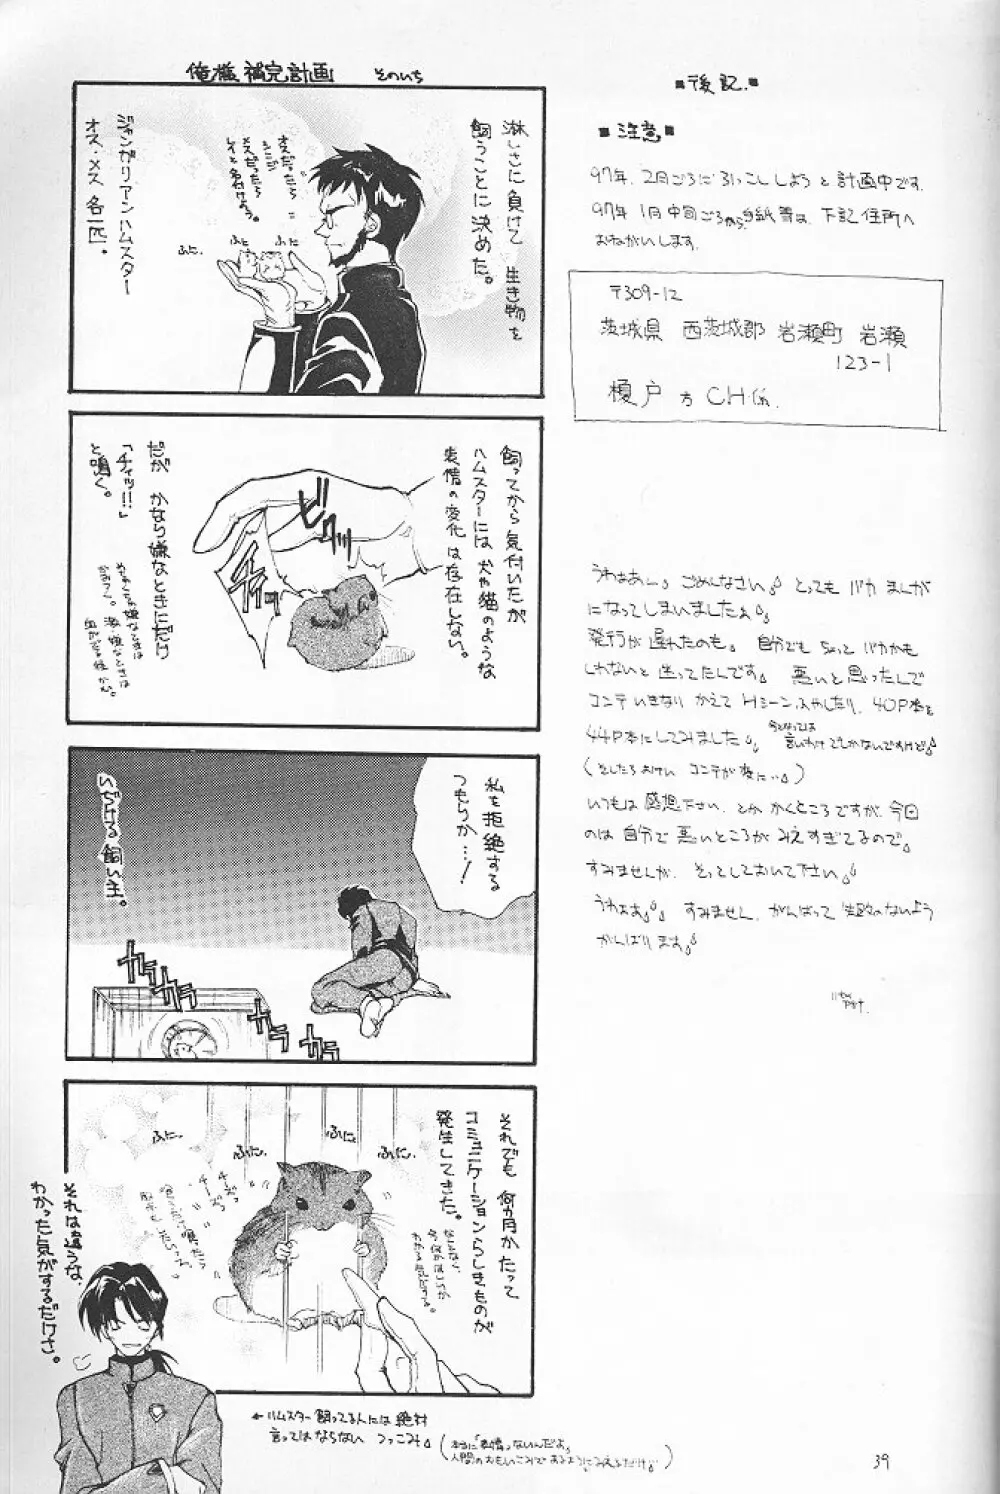 俺様補完計画 そのいち
淋しさに負けて 生き物を
飼うことに決めた。
オスだったら
シンジ
メスだったら
レイと名付けよう。
ふに
ふに。
ふに。
ジャンガリアンハムスター
オス・メス 各一匹。
飼ってから気付いたが
ハムスターには犬や猫のような
表情の変化は存在しない。
ビクッ
だが かなり嫌なときにだけ
「チィッ!!」
と鳴く。
私を拒絶する
つもりか…!
いぢける飼い主。
カラ
カラ
カラ
カラ
それでも 何か月かたって
コミュニケーションらしきものが
発生してきた。
ふに。
ふに。
ふに。
ふに。
チーズっ
チーズっ
それは違うな、
わかった気がするだけさ。
←ハムスター飼ってる人には絶対
言ってはならない つっこみ
(本当に「表情」ないんだよ。
人間のおもいこみであるようにみえるだけ。)
■後記.■
■注意■
97年、2月ごろに引っこししようと計画中です。
97年1月中旬ごろから手紙等は、下記住所へ
おねがいします。
〒309-12
茨城県 西茨城郡 岩瀬町 岩瀬
123-1
榎戸方 CH係.
うわぁぁん。ごめんなさい。とってもバカまんが
になってしまいましたぁ。
発行が遅れたのも。自分でもちょっとバカかも
しれないと迷ってたんです。悪いと思ったんで
コンテいきなりかえてHシーンふやしたり、40P本を
44P本にしてみました。今となっては言いわけでしかないですけど。
(そしたらよけい コンテが変に…)
いつもは感想下さい、とかかくところですが、今回
のは自分で悪いところがみえすぎてるので。
すみませんが、そっとしておいて下さい。
うわぁぁ。すみません、がんばって失敗のないよう
がんばります。
39